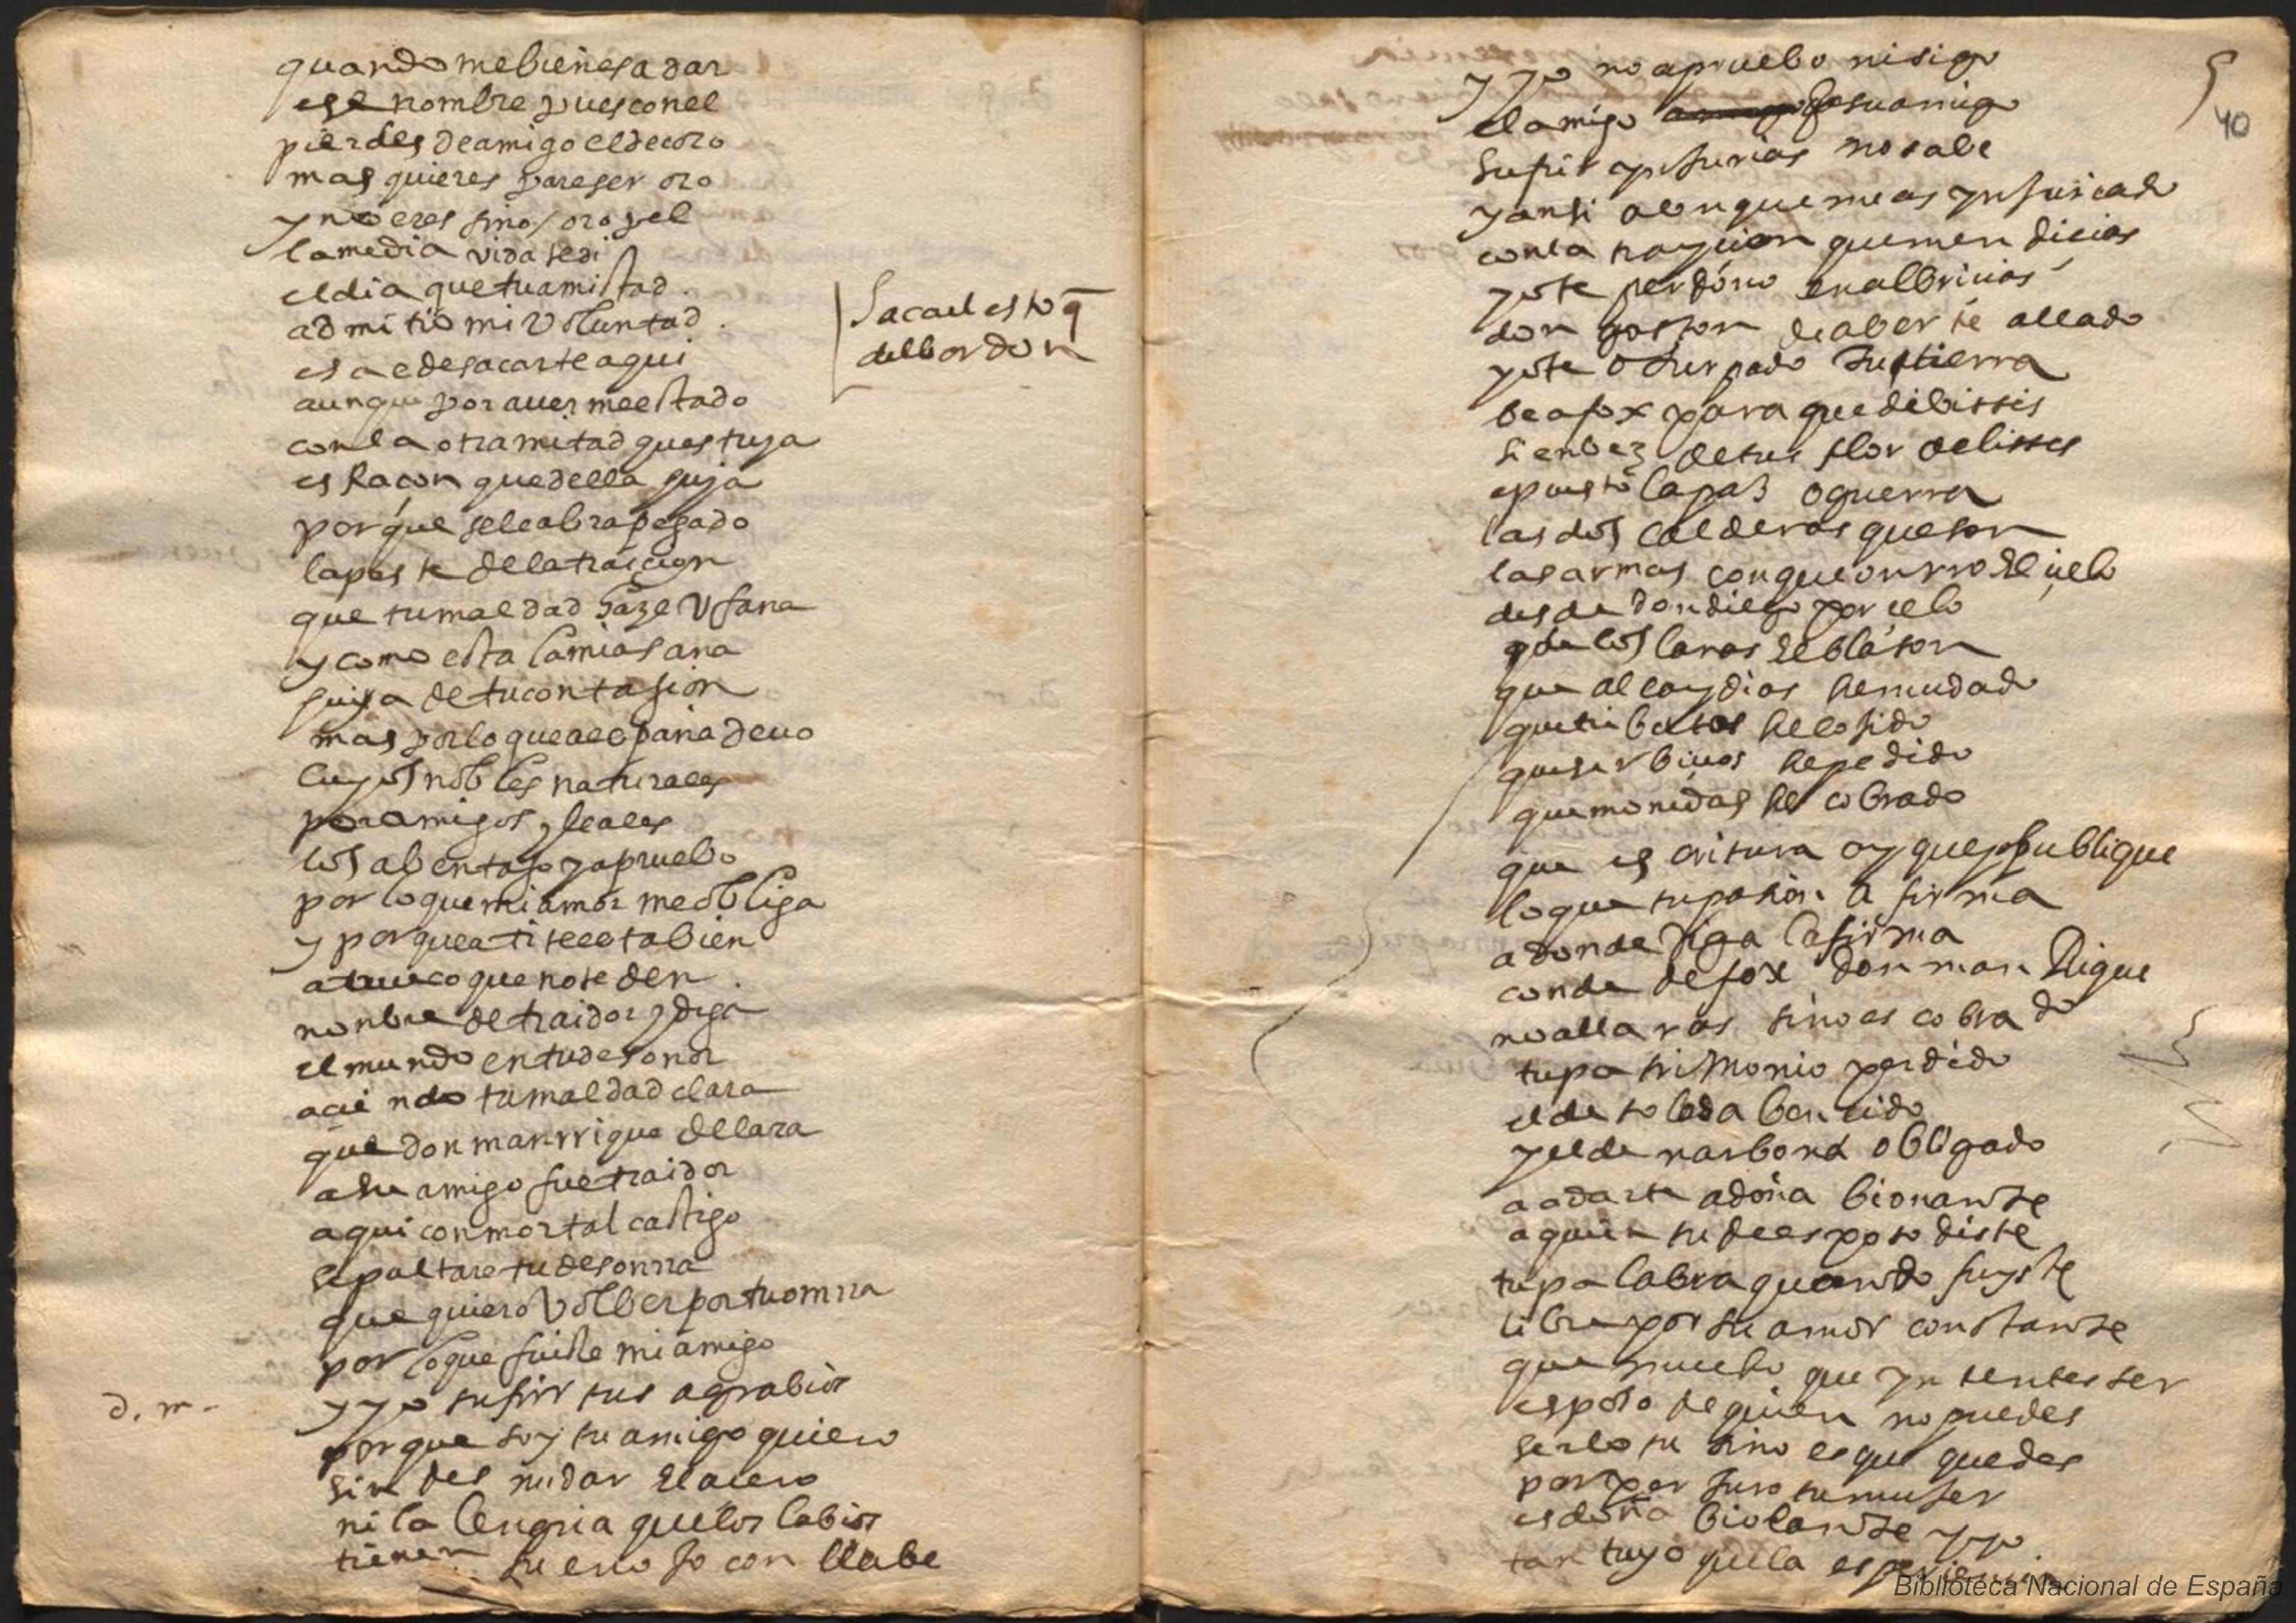 quando mebienes a dar
ese nombre pues con el
pierdes de amigo el decoro
mas quieres pareser oro
y no eres sino oropel
la media vida sedi
el dia que tu amistad
admitio mi voluntad
es a e de sacarte aqui
aunque por auer me estado
con la otra mitad ques tuya
es Racon que della huja
porque sele abra pegado
la peste de la traicion
que tu maldad haze vfana
y como esta la mia sana
huya de tu contasion
mas por lo que a españa deuo
cuyos nobles naturales
por amigos y leales
los abentajo y apruebo
por lo que mi amor me obliga
y porque a ti te esta bien
a trueco que no te den
nonbre de traidor y diga
el mundo en tu desonor
aciendo tu maldad clara
que don manrrique de lara
a su amigo fue traidor
aqui con mortal castigo
sepultare tu desonrra
que quiero volber por tu omrra
por lo que fuiste mi amigo
Saca el estoq
del bordon
d. m.
y yo sufrir tus agrabios
porque soy tu amigo quiero
sin des nudar el acero
ni la lengua que los labios
tienen su enojo con llabe
5
40
y yo no apruebo ni sigo
el amigo q de su amigo
sufrir ynjurias no sabe
y ansi aunque me as ynjuriado
con la traycion que me yn dicias
yo te perdono en albricias
don gaston de aber te allado
yo te o usurpado tu tierra
de a fox para que debisses
si en bez de tus flor de lisses
e puesto la paz o guerra
las dos calderas que son
las armas con que onrro el cielo
desde don diego porcelo
de los laras el blason
que alcaydias he mudado
que tributos he cojido
que serbicios he pedido
que monedas he cobrado
que escritura ay que yo publique
lo que tu pasion a firma
adonde diga la firma
conde de fox don manRique
no allaras sino es cobrado
tu patrimonio perdido
el de tolosa bencido
y el de narbona obligado
a adarte a doña biolante
a quien tu de esposo diste
tu palabra quando fuyste
libre por su amor constante
que mucho que yn tentes ser
esposo de quien no puedes
serlo tu sino es que quedes
por perjuro tu mujer
es doña biolante y yo
tan tuyo que la esperiencia
Biblioteca Nacional de España